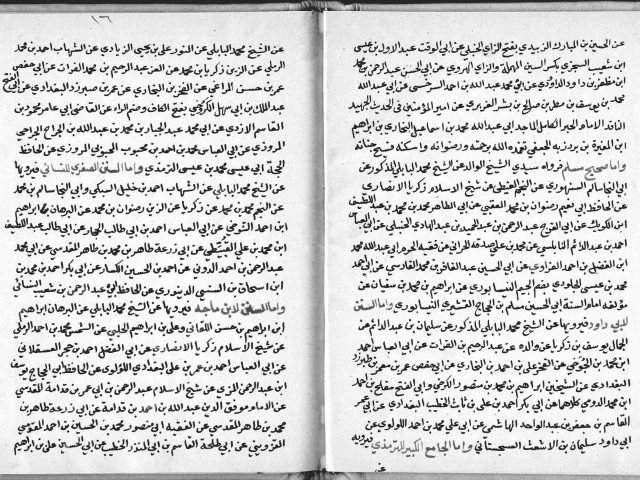 عن الحسين بن المبارك الزبيدي بفتح الزاي الحنبلي عن ابي الوقت عبد الاول بن عيسى
ابن شعيب السجزي بكسر السين المهملة والزاي الهروي عن ابي الحسن عبد الرحمن بن محمد
ابن مظفر بن داود الداودي عن ابي محمد عبد الله بن احمد السرخسي عن ابي عبد الله
محمد بن يوسف بن مطر بن صالح بن بشر الفربري عن امير المؤمنين في الحديث الجهبذ
الناقد الامام الحبر الكامل الماجد ابي عبد الله محمد بن اسماعيل البخاري بن ابراهيم
ابن المغيرة بن بردزبه الجعفي تغمده الله برحمته ورضوانه واسكنه فسيح جناته
واما صحيح مسلم فرواه سيدي الشيخ الوالد عن الشيخ محمد البابلي المذكور عن
ابي النجا سالم السنهوري عن النجم الغيطي عن شيخ الاسلام زكريا الانصاري
عن الحافظ ابي نعيم رضوان بن محمد العقبي عن ابي الطاهر محمد بن محمد بن عبد اللطيف
ابن الكويك عن ابي الفرج عبد الرحمن بن عبد الحميد بن عبد الهادي الحنبلي عن ابي العباس
احمد بن عبد الدائم النابلسي عن محمد بن علي بن صدقة الحراني عن فقيه الحرم ابي عبد الله محمد
ابن الفضل بن احمد الفراوي عن ابي الحسين عبد الغافر بن محمد الفارسي عن ابي احمد
محمد بن عيسى الجلودي بضم الجيم النيسابوري عن ابراهيم بن محمد بن سفيان عن
مؤلفه امام السنة ابي الحسين مسلم بن الحجاج القشيري النيسابوري واما السنن
لابي داود فيرويها عن الشيخ محمد البابلي المذكور عن سليمان بن عبد الدائم عن
الجمال يوسف بن زكريا عن والده عن عبد الرحيم بن الفرات عن ابي العباس احمد
ابن محمد بن الجوخي عن الفخر علي بن احمد بن البخاري عن ابي حفص عمر بن معمر بن طبرزد
البغدادي عن الشيخين ابراهيم بن محمد بن منصور الكرخي وابي الفتح مفلح بن احمد
ابن محمد الدومي كلاهما عن ابي بكر احمد بن علي بن ثابت الخطيب البغدادي عن ابي عمر
القاسم بن جعفر بن عبد الواحد الهاشمي عن ابي علي محمد بن احمد اللولوي عن
ابي داود سليمان بن الاشعث السجستاني واما الجامع الكبير للترمذي فيرويه
عن
١٦
عن الشيخ محمد البابلي عن النور علي بن يحيى الزيادي عن الشهاب احمد بن محمد
الرملي عن الزين زكريا بن محمد عن العز عبد الرحيم بن محمد الفرات عن ابي حفص
عمر بن حسن المراغي عن الفخر بن البخاري عن عمر بن طبرزد البغدادي عن ابي الفتح
عبد الملك بن ابي سهل الكروخي بفتح الكاف وضم الراء عن القاضي ابي عامر محمود بن
القاسم الازدي عن ابي محمد عبد الجبار بن محمد بن عبد الله بن الجراح الجراحي
المروزي عن ابي العباس محمد بن احمد بن محبوب المحبوبي المروزي عن الحافظ
الحجة ابي عيسى محمد بن عيسى الترمذي واما السنن الصغرى للنسائي فيرويها
عن الشيخ محمد البابلي عن الشهاب احمد بن خليل السبكي وابي النجا سالم بن محمد
عن النجم محمد بن محمد عن زكريا عن الزين رضوان بن محمد عن البرهان ابراهيم
ابن احمد التنوخي عن ابي العباس احمد بن ابي طالب الحجار عن ابي طالب عبد اللطيف
ابن محمد بن علي القبيطي عن ابي زرعة طاهر بن محمد بن طاهر المقدسي عن ابي محمد
عبد الرحمن بن احمد الدوني عن احمد بن الحسين الكسار عن ابي بكر احمد بن محمد بن
ابن اسحاق بن السني الدينوري عن الحافظ ابي عبد الرحمن بن شعيب النسائي
واما السنن لابن ماجه فيرويها عن الشيخ محمد البابلي عن البرهان ابراهيم
ابن ابراهيم بن حسن اللقاني وعلي بن ابراهيم الحلبي عن الشمس محمد بن احمد الرملي
عن شيخ الاسلام زكريا الانصاري عن ابي الفضل احمد بن حجر العسقلاني
عن ابي العباس احمد بن عمر بن علي البغدادي اللؤلؤي عن الحافظ ابي الحجاج يوسف
ابن عبد الرحمن المزي عن شيخ الاسلام عبد الرحمن بن ابي عمر بن قدامة المقدسي
عن الامام موفق الدين عبد الله بن احمد بن قدامة عن ابي زرعة طاهر بن
محمد بن طاهر المقدسي عن الفقيه ابي منصور محمد بن الحسين بن احمد المقومي
القزويني عن ابي طلحة القاسم بن ابي المنذر الخطيب عن ابي الحسن علي بن ابراهيم